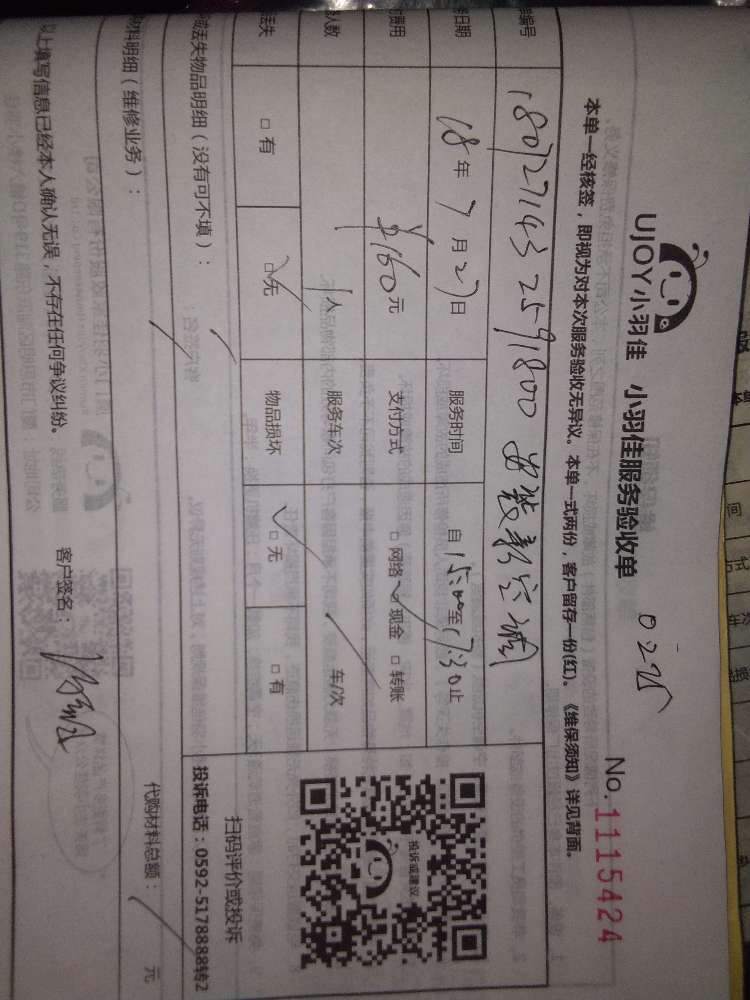 UJOY小羽佳 小羽佳服务验收单
0225
No.1115424
本单一经核签，即视为对本次服务验收无异议。本单一式两份，客户留存一份(红)。《维保须知》详见背面。
编号 1807271432591800 安装新空调
日期 18年7月27日 服务时间 自15:00至17:30止
费用 ¥160元 支付方式 □网络 ☑现金 □转账
人数 1人 服务车次 / 车/次
遗失 □有 ☑无 物品损坏 ☑无 □有
遗失物品明细（没有可不填）： /
材料明细（维修业务）： /
代购材料总额： / 元
以上填写信息已经本人确认无误，不存在任何争议纠纷。
客户签名：
投诉或建议
扫码评价或投诉
投诉电话：0592-5178888转2